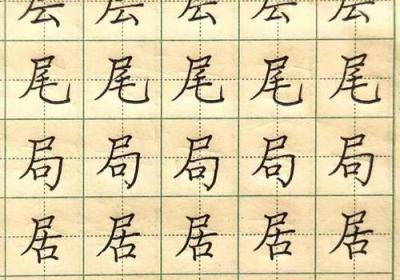 层 层 层 层 层
尾 尾 尾 尾 尾
局 局 局 局 局
居 居 居 居 居